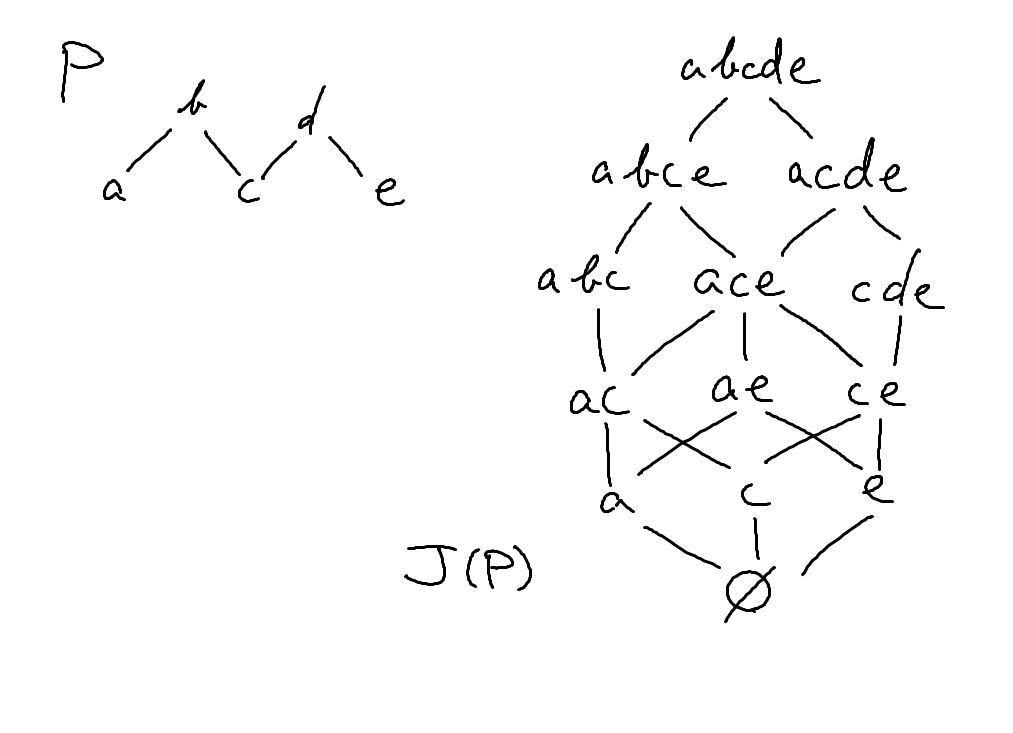 P
b d
a c e
abcde
abce acde
abc ace cde
ac ae ce
a c e
J(P)
∅